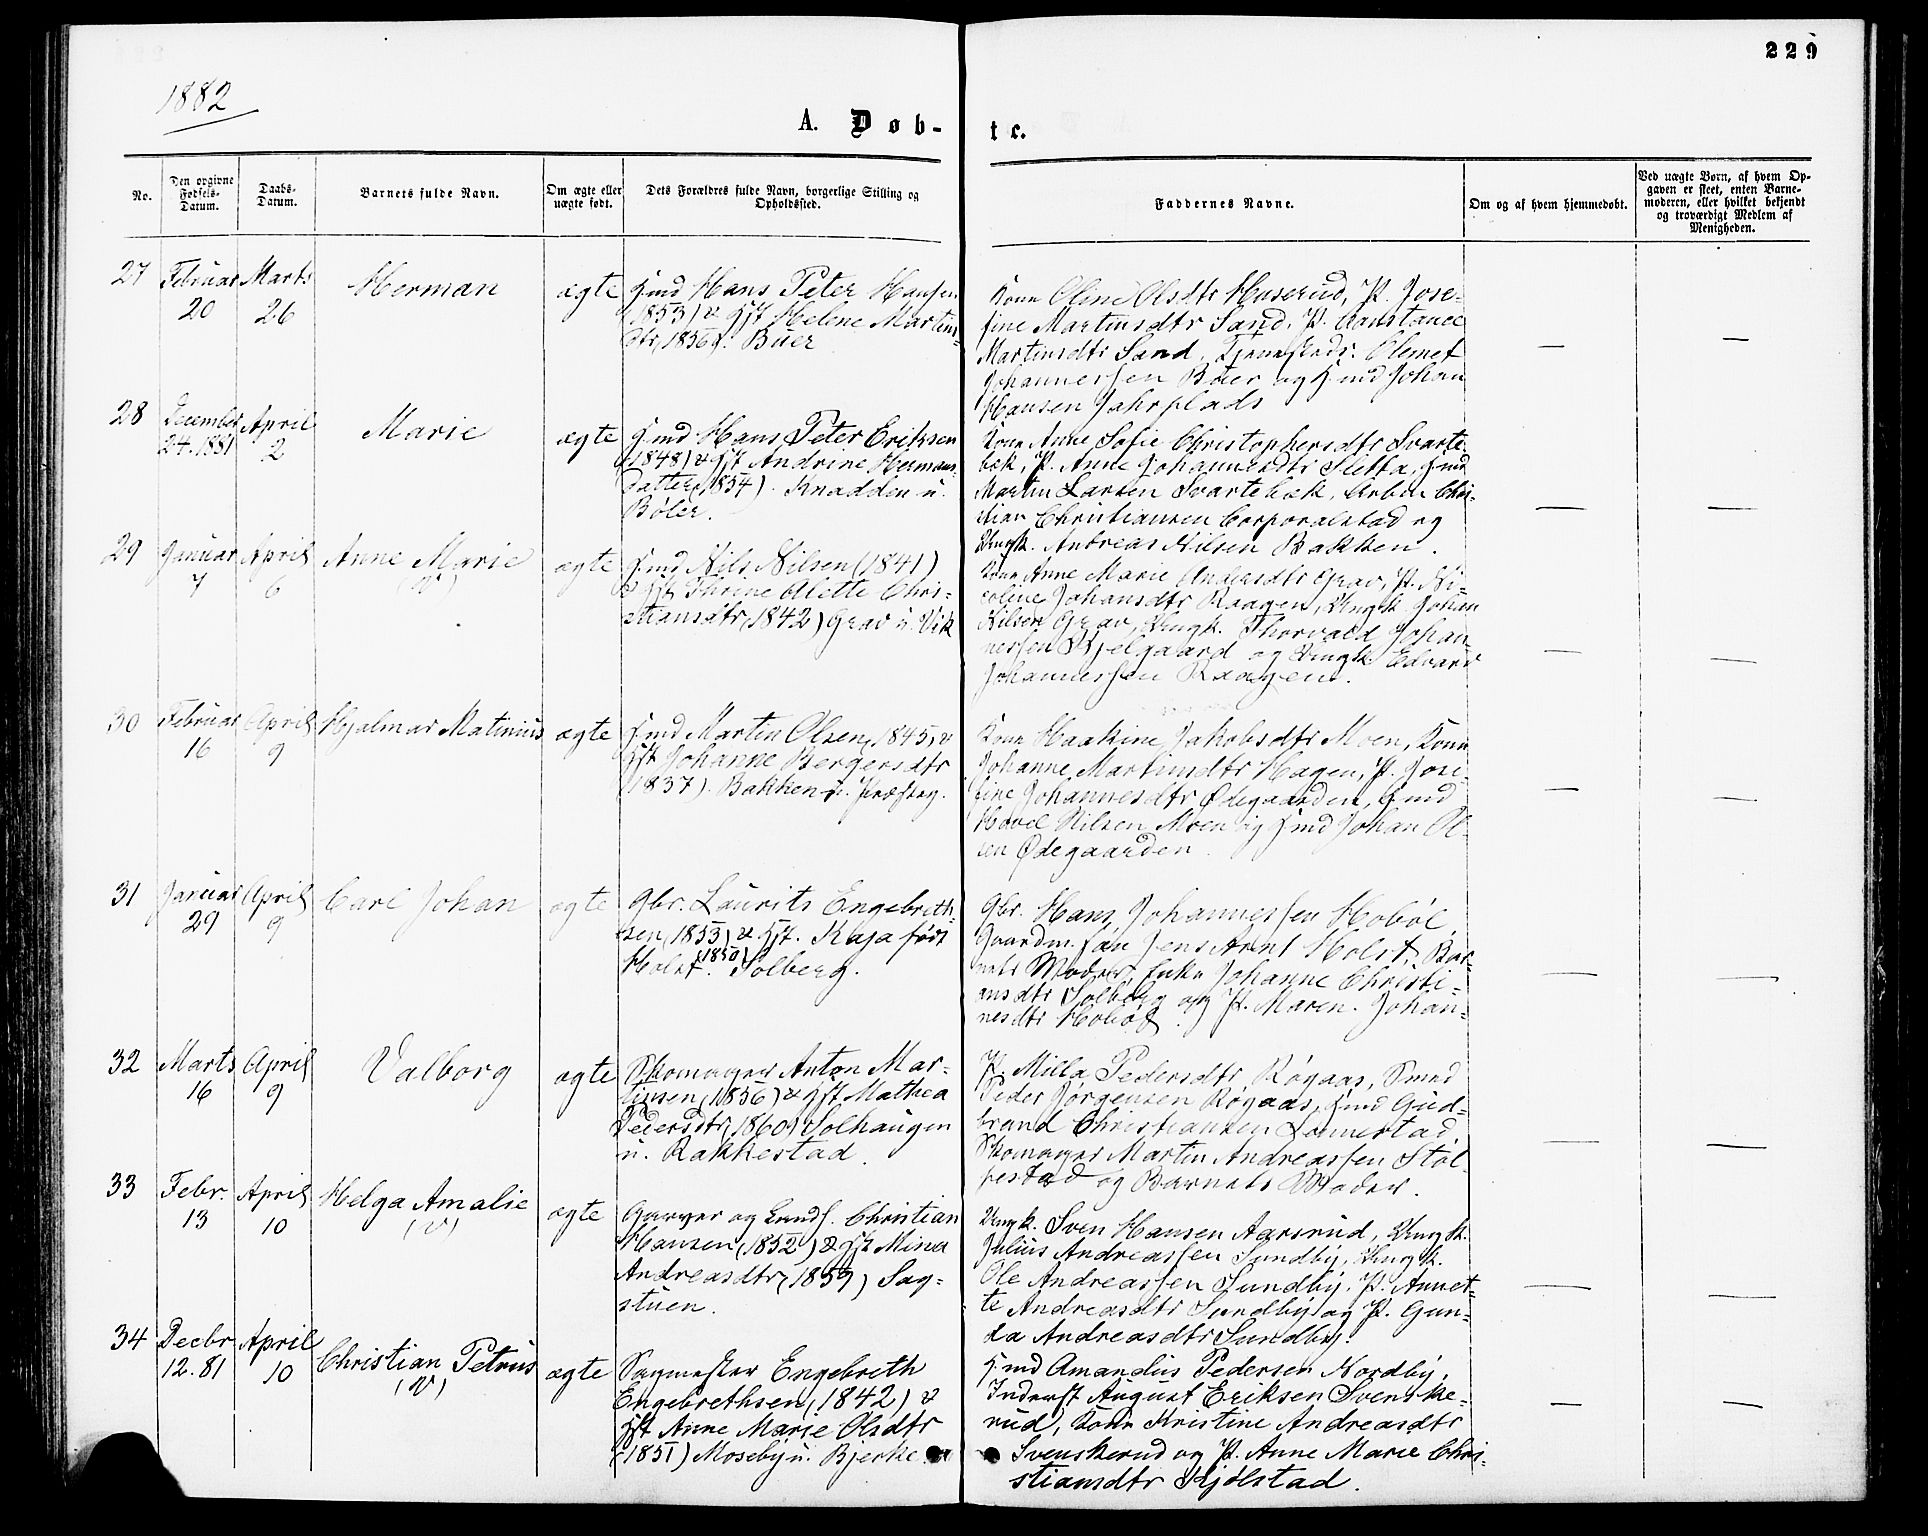 229
1882
A. Døb-
te.
No.
Den opgivne
Fødsels-
Datum.
Daabs-
Datum.
Barnets fulde Navn.
Om ægte eller
uægte født.
Dets Forældres fulde Navn, borgerlige Stilling og
Opholdssted.
Faddernes Navne.
Om og af hvem hjemmedøbt.
Ved uægte Børn, af hvem Op-
gaven er skeet, enten Barne-
moderen, eller hvilket bekjendt
og troværdigt Medlem af
Menigheden.
27
Februar
20
Marts
26
Herman
ægte
Hans Peter Hansen
(1853) & Hst Helene Martins-
dtr (1856). Buer
Kone Oline Olsdtr Huserud, P. Jose-
fine Martinsdtr Sand, P. Constance
Martinsdtr Sand, Clemet
Johannessen Buer og Johan
Hansen Jahrplads
—
—
28
December
24. 1881
April
2
Marie
ægte
Hans Peter Eriksen
(1848) & Hst Andrine Hermans-
datter (1854). Knadden u.
Bøler.
Kone Anne Sofie Christophersdtr Svarte-
bæk, P. Anne Johannesdtr Sletta,
Martin Larsen Svartebæk, Arb. Chri-
stian Christiansen Corporalstad og
Ungk. Andreas Nilsen Bakken.
—
—
29
Januar
7
April
6
Anne Marie
(V)
ægte
Nils Nilsen (1841)
& Hst Thrine Alette Chri-
stiansdtr (1842) Grav u. Vik
Kone Anne Marie Andersdtr Grav, P. Ni-
coline Johansdtr Kragen, Ungk. Johan
Nilsen Grav, Ungk. Thorvald Johan-
nessen Kjelgaard og Ungk. Edvard
Johannessen Kragen.
—
—
30
Februar
16
April
9
Hjalmar Matinius
ægte
Martin Olsen (1845) &
Hst Johanne Bergersdtr
(1837). Bakken u. Præsteg.
Kone Haakine Jakobsdtr Moen, Kone
Johanne Martinsdtr Hagen, P. Jose-
fine Johannesdtr Ødegaarden,
Hovel Nilsen Moen og Johan Ol-
sen Ødegaarden.
—
—
31
Januar
29
April
9
Carl Johan
ægte
Gbr. Laurits Engebreth-
sen (1853) & Hst. Kaja født
Holst (1850). Solberg.
Gbr. Hans Johannessen Hobøl
Gaardm. Jens Arnt Holst, Bar-
nets Moder, Enke Johanne Christi-
ansdtr Solberg og P. Maren Johan-
nesdtr Hobøl.
—
—
32
Marts
16
April
9
Valborg
ægte
Skomager Anton Mar-
tinsen (1856) & Hst Mathea
Pedersdtr (1860) Solhaugen
u. Rakkestad.
P. Milla Pedersdtr Røgaas, Smed
Peder Jørgensen Røgaas, Gud-
brand Christiansen Lonnestad,
Skomager Martin Andreassen Støl-
pestad og Barnets Moder.
—
—
33
Febr.
13
April
10
Helga Amalie
(V)
ægte
Garver og Landh. Christian
Hansen (1852) & Hst Mina
Andreasdtr (1859) Sag-
stuen.
Ungk. Sven Hansen Aarsrud, Ungk.
Julius Andreassen Sundby, Ungk.
Ole Andreassen Sundby, P. Annet-
te Andreasdtr Sundby og P. Gun-
da Andreasdtr Sundby.
—
—
34
Decbr
12. 81
April
10
Christian Petrus
(V)
ægte
Sagmester Engebreth
Engebrethsen (1842) &
Hst Anne Marie Olsdtr
(1851) Moseby u. Bjerke.
Amandus Pedersen Nordby,
Inderst August Eriksen Svenske-
rud, Kone Kristine Andreasdtr
Svenskerud og P. Anne Marie Chri-
stiansdtr Kjølstad.
—
—